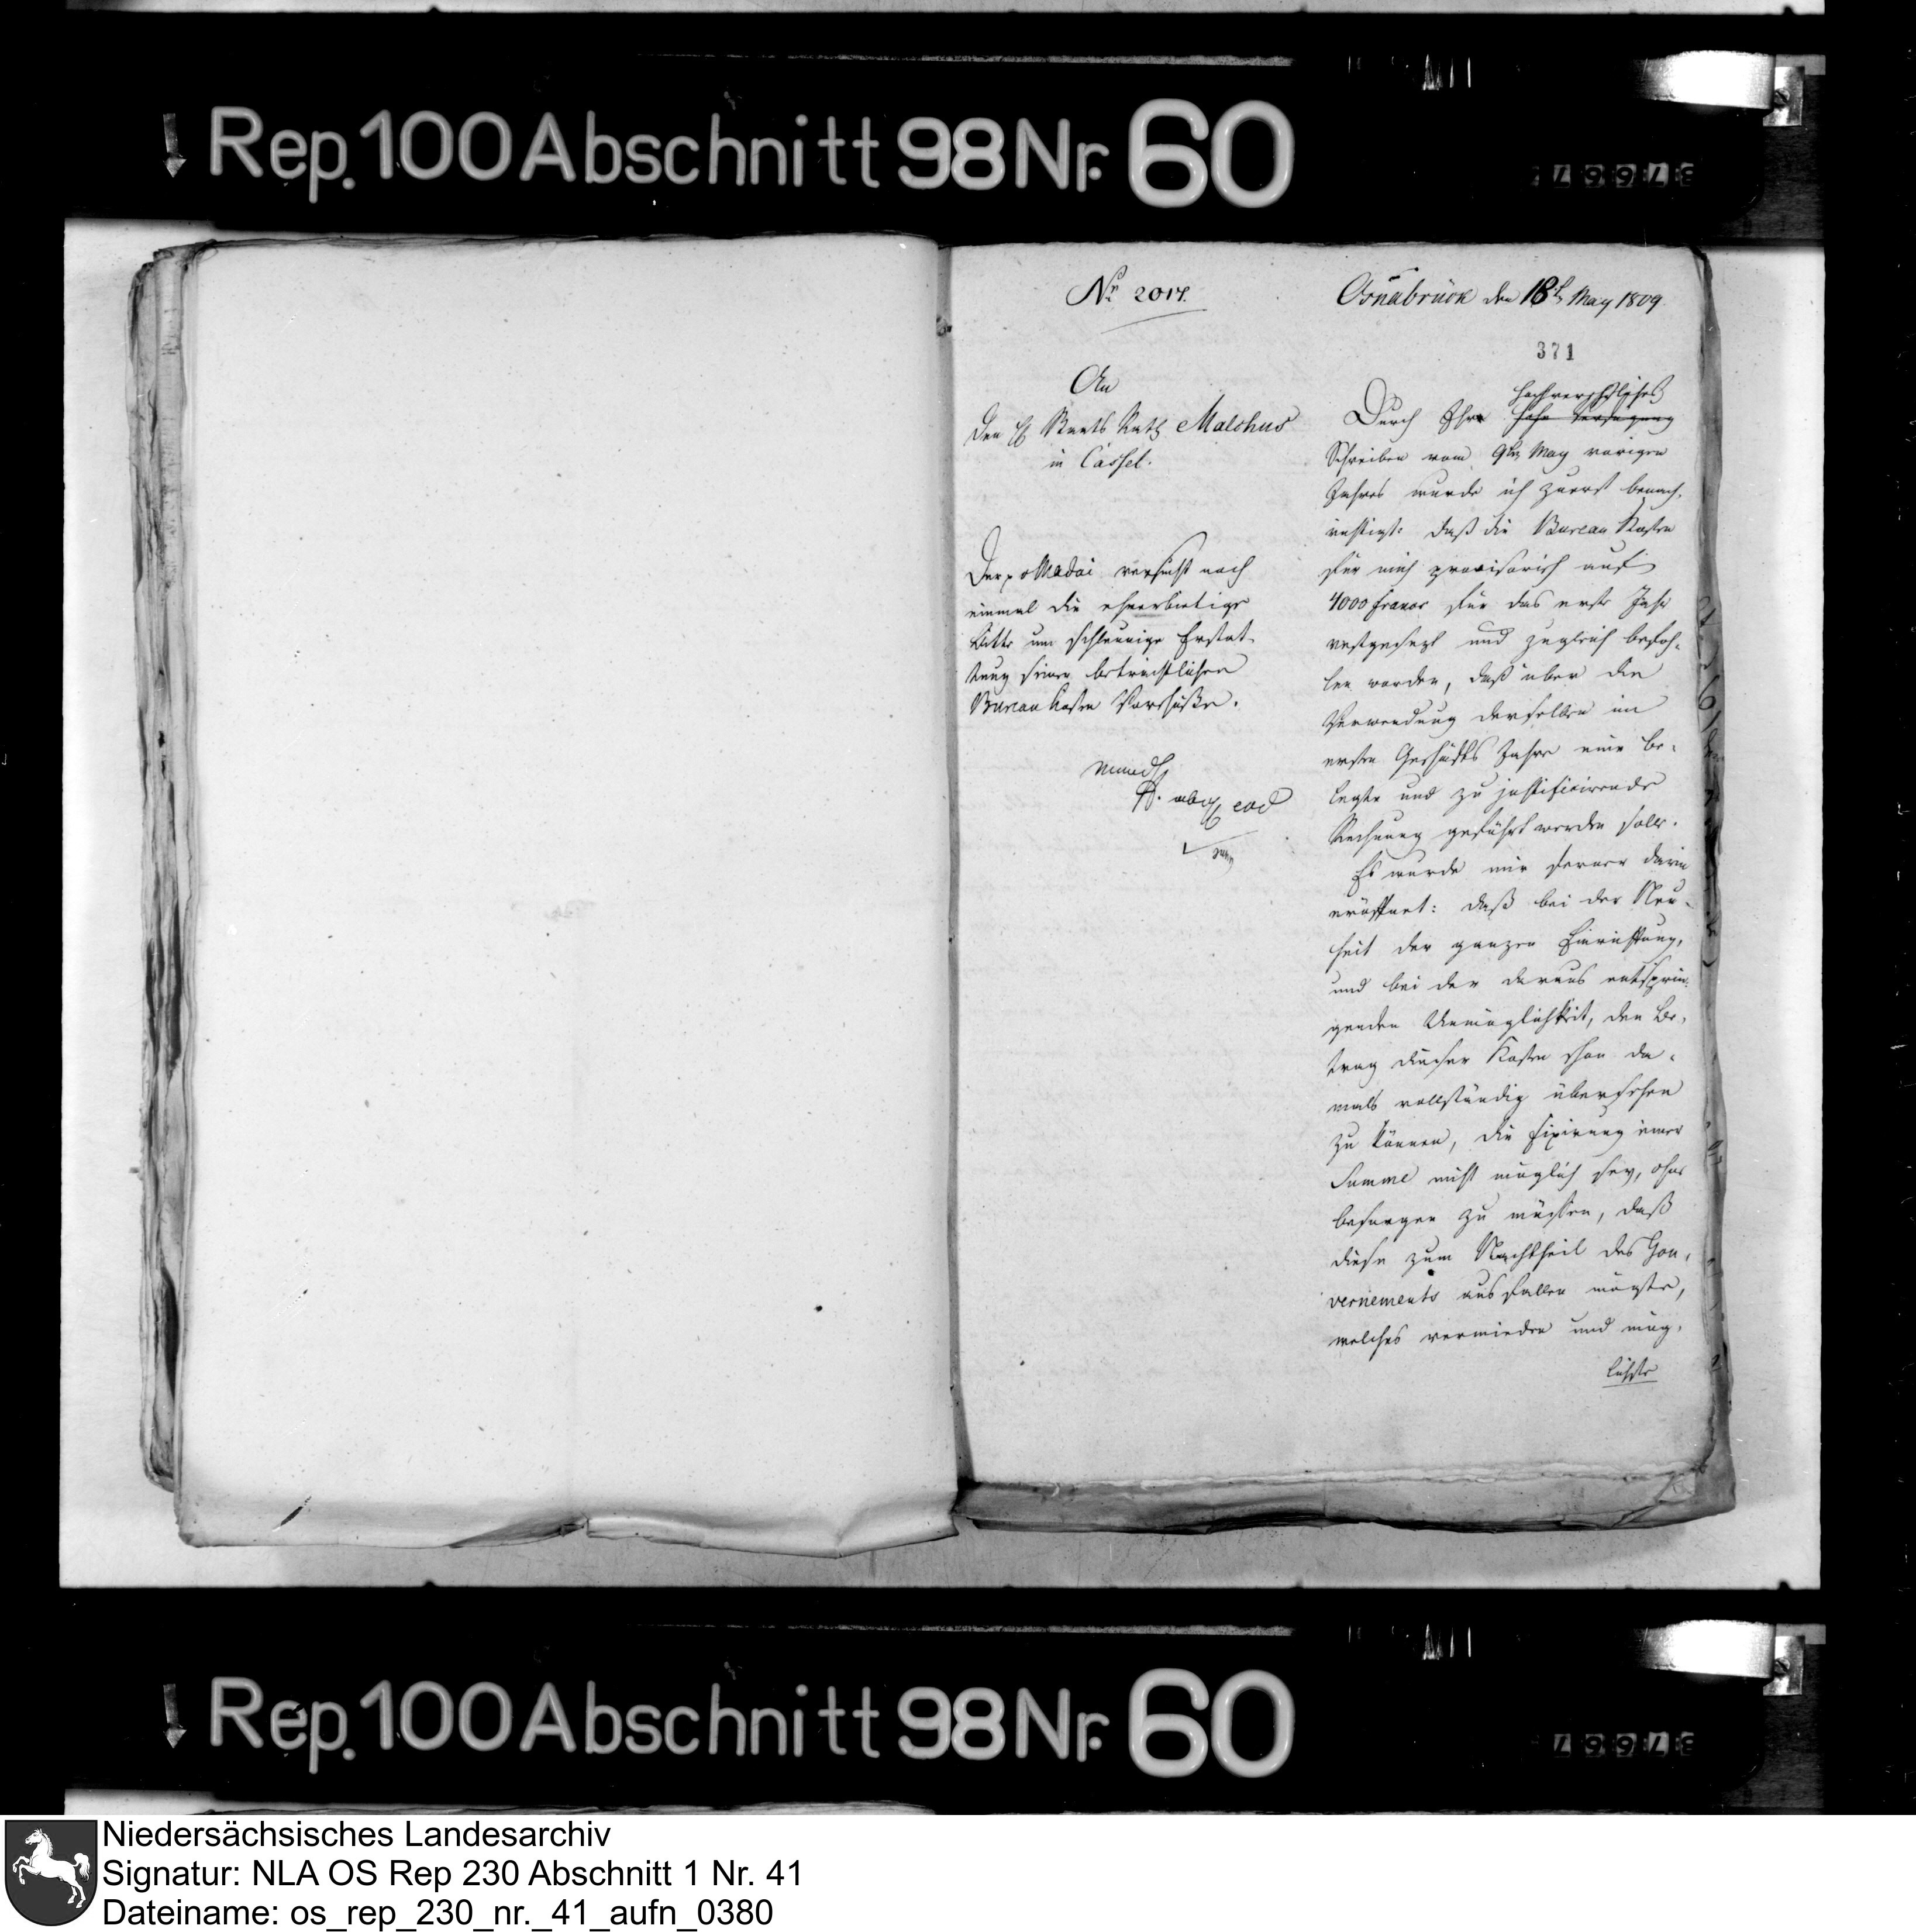 Rep. 100 Abschnitt 98 Nr. 60
37667
Nr 2017.
Osnabrück den 18t May 1809
371
An
den H Staats Rath Malchus
in Cassel.
Der p vMadai ersucht noch
einmal die ehrerbietige
Bitte um schleunige Erstat-
tung seiner beträchtlichen
Bureau Kosten Vorschüße.
mund
abg eod
Durch Ihr hochverehrliches
hohe Verfügung
Schreiben vom 9ten May vorigen
Jahres wurde ich zuerst benach-
richtigt: daß die Bureau Kosten
für mich provisorisch auf
4000 francs für das erste Jahr
vestgesezt und zugleich befoh-
len worden, daß über die
Verwendung derselben im
ersten Geschäfts Jahre eine be-
legte und zu justificirende
Rechnung geführt werden solle.
Es wurde mir ferner darin
eröffnet: daß bei der Neu-
heit der ganzen Einrichtung,
und bei der daraus entsprin-
genden Unmöglichkeit, den Be-
trag dieser Kosten schon da-
mals vollständig übersehen
zu können, die Fixirung einer
Summe nicht möglich sey, ohne
besorgen zu müssen, daß
diese zum Nachtheil des Gou-
vernements ausfallen mögte,
welches vermieden und mög-
lichste
Rep. 100 Abschnitt 98 Nr. 60
37667
Niedersächsisches Landesarchiv
Signatur: NLA OS Rep 230 Abschnitt 1 Nr. 41
Dateiname: os_rep_230_nr._41_aufn_0380